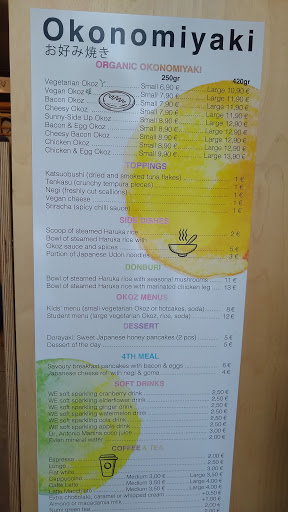 Okonomiyaki
お好み焼き
ORGANIC OKONOMIYAKI
250gr 420gr
Vegetarian Okoz Small 6,90 € Large 10,90 €
Vegan Okoz Small 7,90 € Large 11,90 €
Bacon Okoz Small 7,90 € Large 11,90 €
Cheesy Okoz Small 7,90 € Large 11,90 €
Sunny-Side Up Okoz Small 8,90 € Large 12,90 €
Bacon & Egg Okoz Small 8,90 € Large 12,90 €
Cheesy Bacon Okoz Small 8,90 € Large 12,90 €
Chicken Okoz Small 8,90 € Large 12,90 €
Chicken & Egg Okoz Large 12,90 €
TOPPINGS
Katsuobushi (dried and smoked tuna flakes) 1 €
Tenkasu (crunchy tempura pieces) 1 €
Negi (freshly cut scallions) 1 €
Vegan cheese 1 €
Sriracha (spicy chilli sauce) 1 €
SIDE DISHES
Scoop of steamed Haruka rice 2 €
Bowl of steamed Haruka rice with
Okoz sauce and spices 5 €
Portion of Japanese Udon noodles 3 €
DONBURI
Bowl of steamed Haruka rice with seasonal mushrooms 11 €
Bowl of steamed Haruka rice with marinated chicken leg 13 €
OKOZ MENUS
Kids' menu (small vegetarian Okoz or hotcakes, soda) 8 €
Student menu (large vegetarian Okoz, rice, soda) 12 €
DESSERT
Dorayaki: Sweet Japanese honey pancakes (2 pos) 5 €
Dessert of the day 5 €
4TH MEAL
Savoury breakfast pancakes with bacon & eggs 6 €
Japanese cheese roll with negi & goma 4 €
SOFT DRINKS
WE soft sparkling cranberry drink 2,50 €
WE soft sparkling elderflower drink 2,50 €
WE soft sparkling ginger drink 2,50 €
WE soft sparkling watermelon drink 2,50 €
WE soft sparkling cola drink 2,50 €
WE soft sparkling apple drink 2,50 €
Dr. Antonio Martins coco juice 3,00 €
Evian mineral water 2,00 €
COFFEE & TEA
Espresso 2,00 €
Lungo
Flat white
Cappuccino Medium 3,00 € Large 3,50 €
Caffè Latte Medium 3,50 € Large 4,00 €
Latte Macchiato Medium 3,50 € Large 4,00 €
Extra chocolate, caramel or whipped cream +0,50 €
Almond or macadamia milk +1,00 €